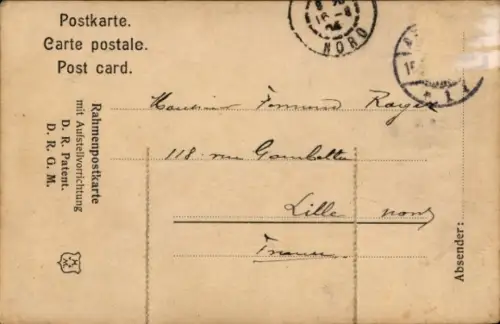 Postkarte.
Carte postale.
Post card.
NORD
Rahmenpostkarte
mit Aufstellvorrichtung
D. R. Patent.
D. R. G. M.
Monsieur Fernand
118 rue Gambetta
Lille nord
France
Absender: